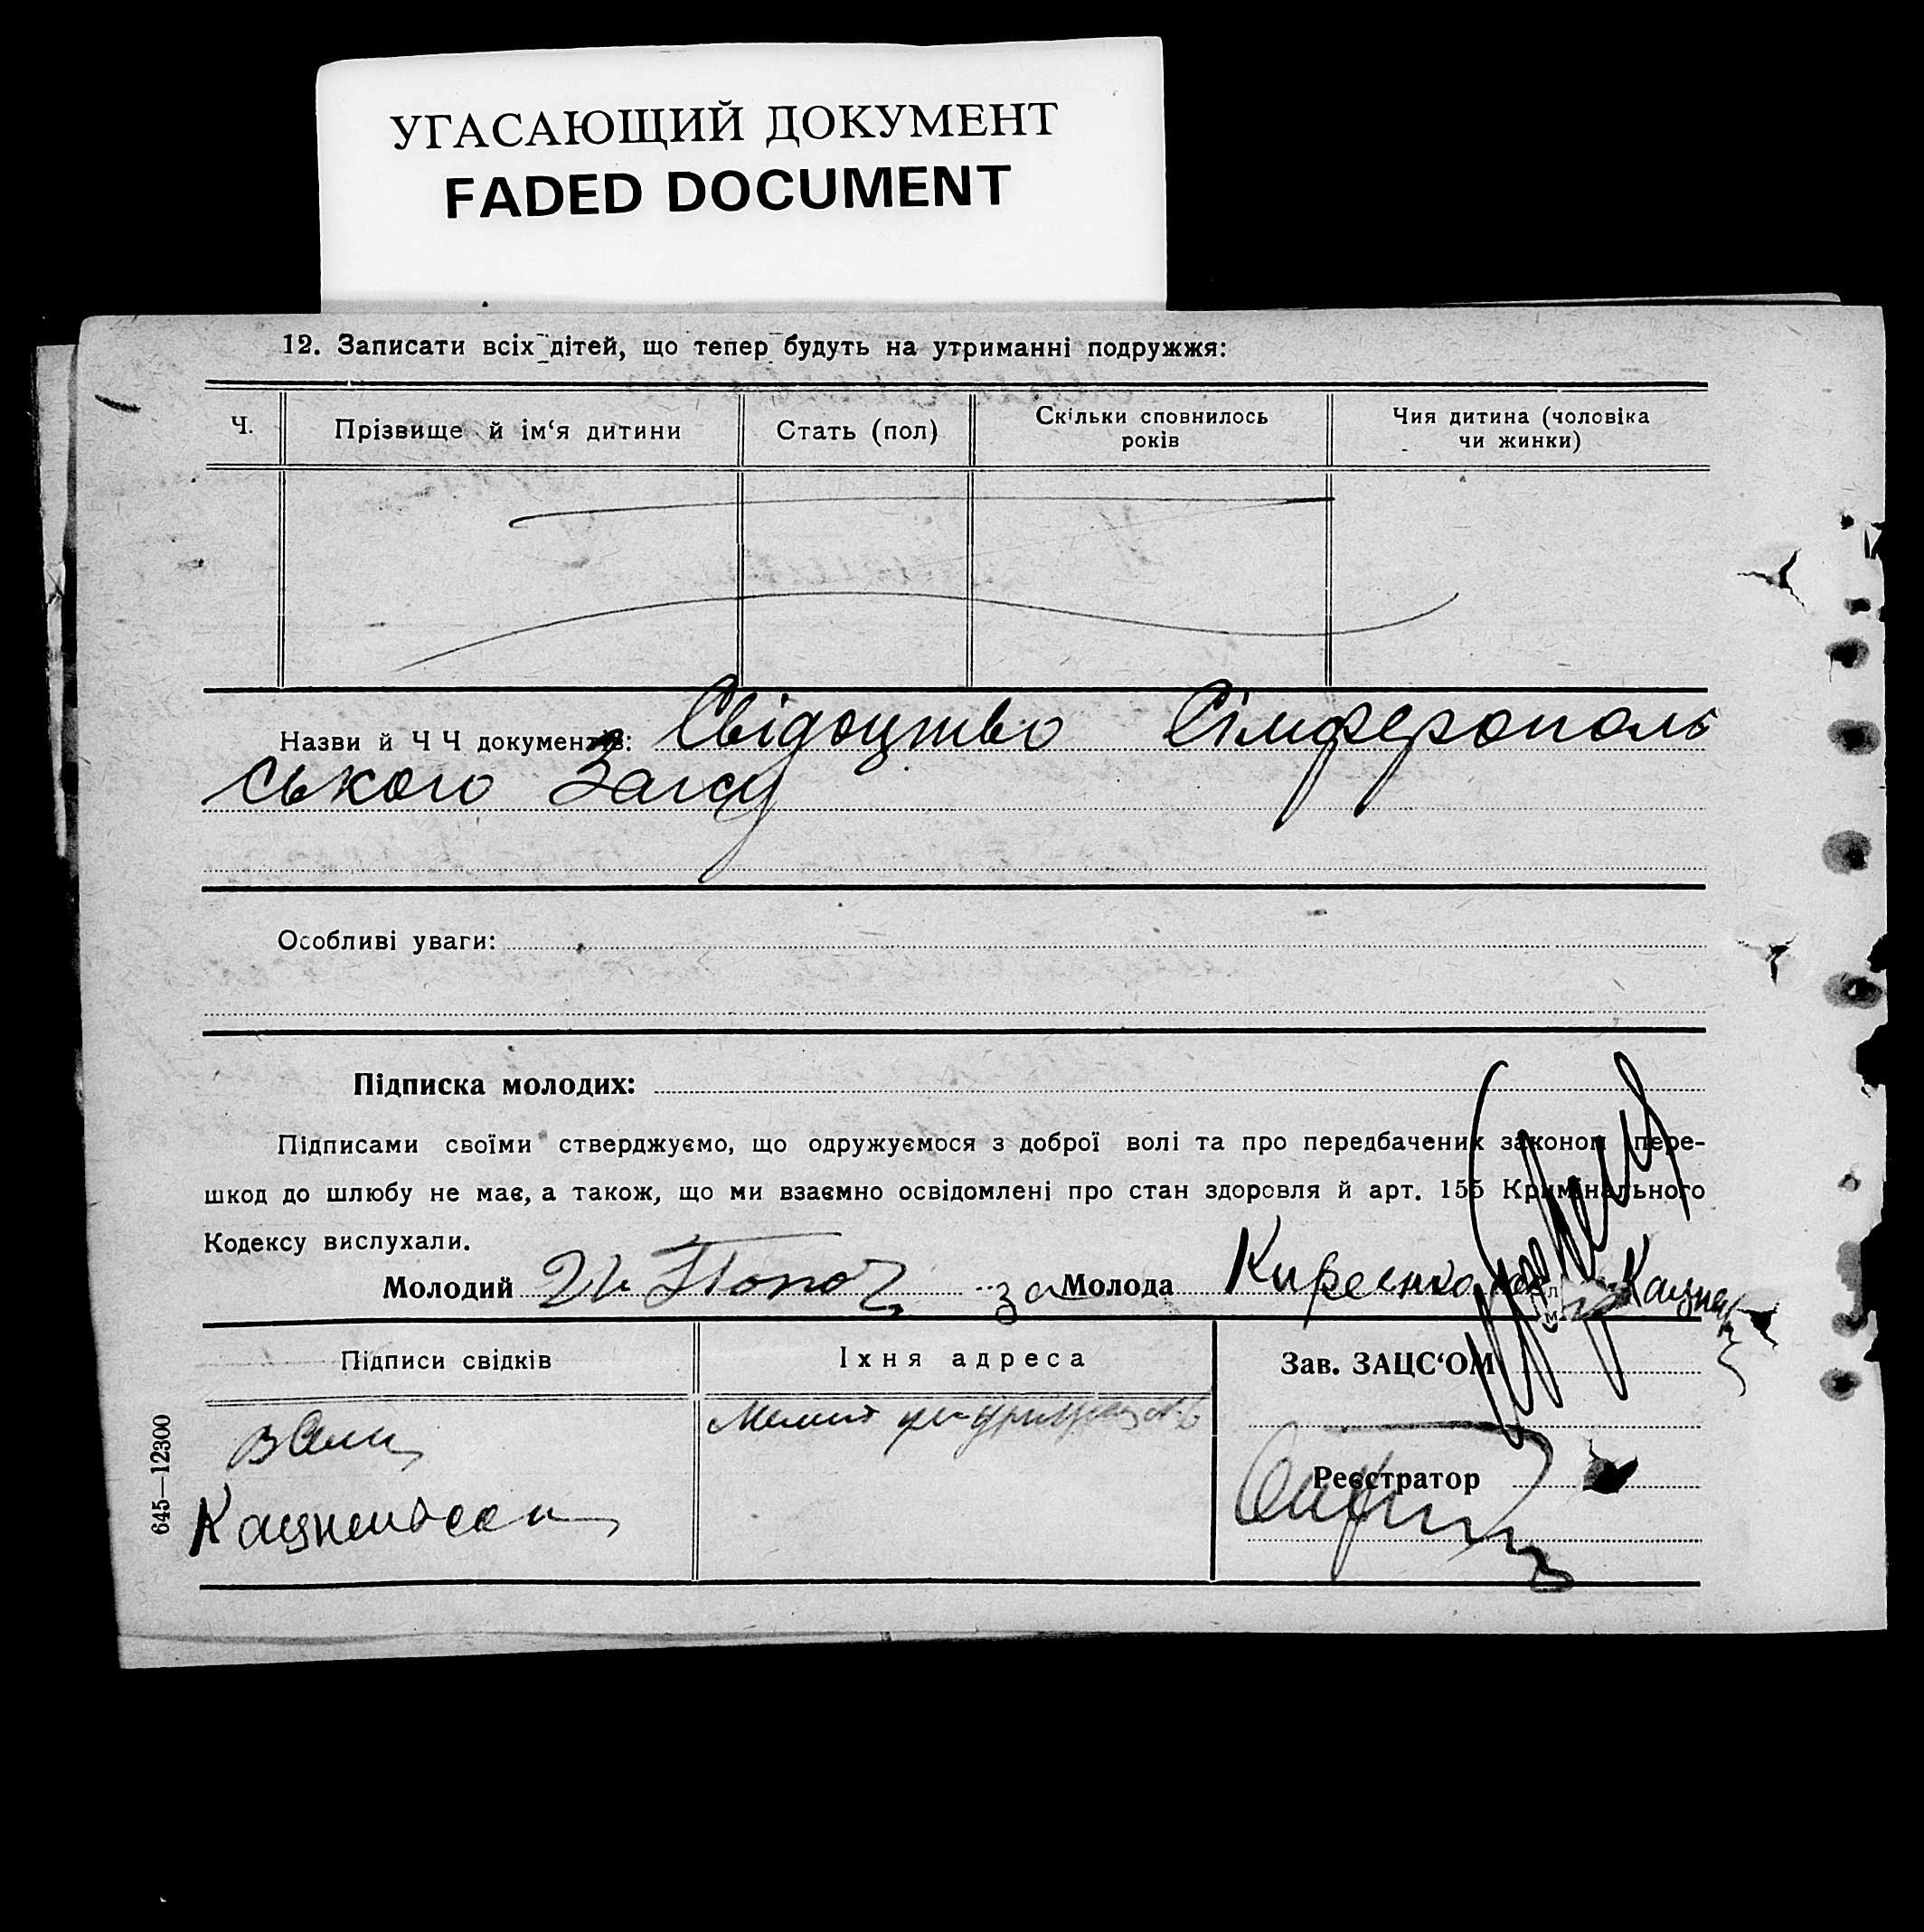 УГАСАЮЩИЙ ДОКУМЕНТ
FADED DOCUMENT
12. Записати всіх дітей, що тепер будуть на утриманні подружжя:
Ч.
Прізвище й ім‘я дитини
Стать (пол)
Скільки сповнилось
років
Чия дитина (чоловіка
чи жинки)
Назви й Ч Ч документів: Свідоцтво Сімферополь
ського Загсу
Особливі уваги:
Підписка молодих:
Підписами своїми стверджуємо, що одружуємося з доброї волі та про передбачених законом пере-
шкод до шлюбу не має, а також, що ми взаємно освідомлені про стан здоровля й арт. 155 Кримінального
Кодексу вислухали.
Молодий за Молода
Підписи свідків
Їхня адреса
Зав. ЗАЦС‘ОМ
Реєстратор
645—12300